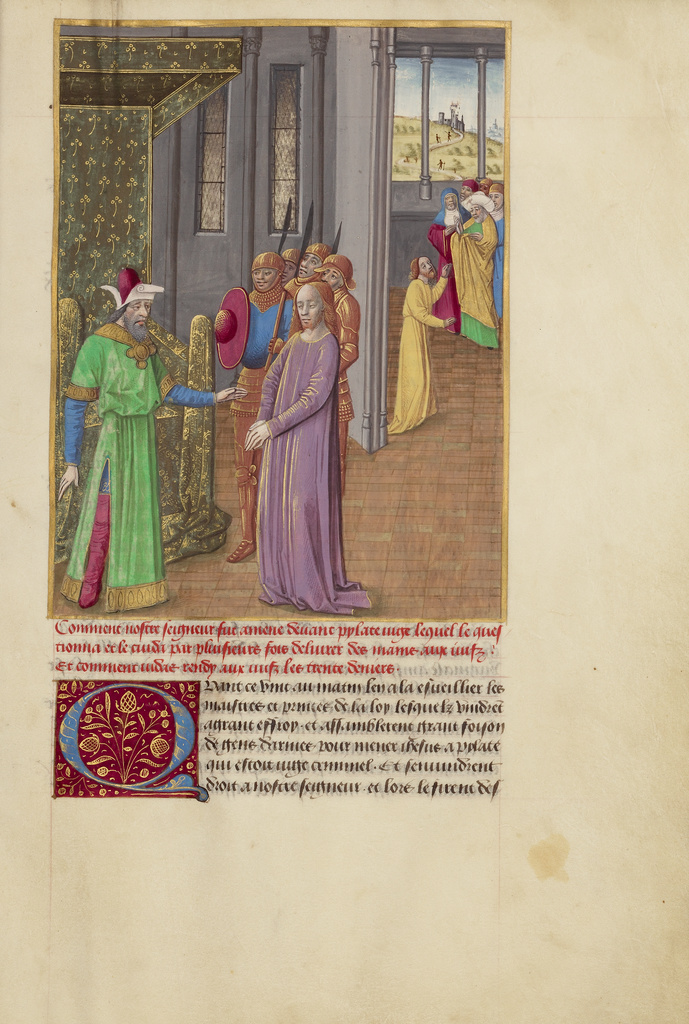 Comment nostre seigneur fut amene deuant pylate iuge lequel le ques
tionna et le cuida par plusieurs fois deliurer des mains aux iuifz ?
Et comment iudas rendy aux iuifz les trente deniers .
Quant ce vint au matin len ala esueillier les
maistres et princes de la loy lesquelz vindrent
a grant effroy . et assemblerent grant foison
de gens darmes pour mener ihesus a pylate
qui estoit iuge criminel . Et sen vindrent
droit a nostre seigneur . et lors le firent des